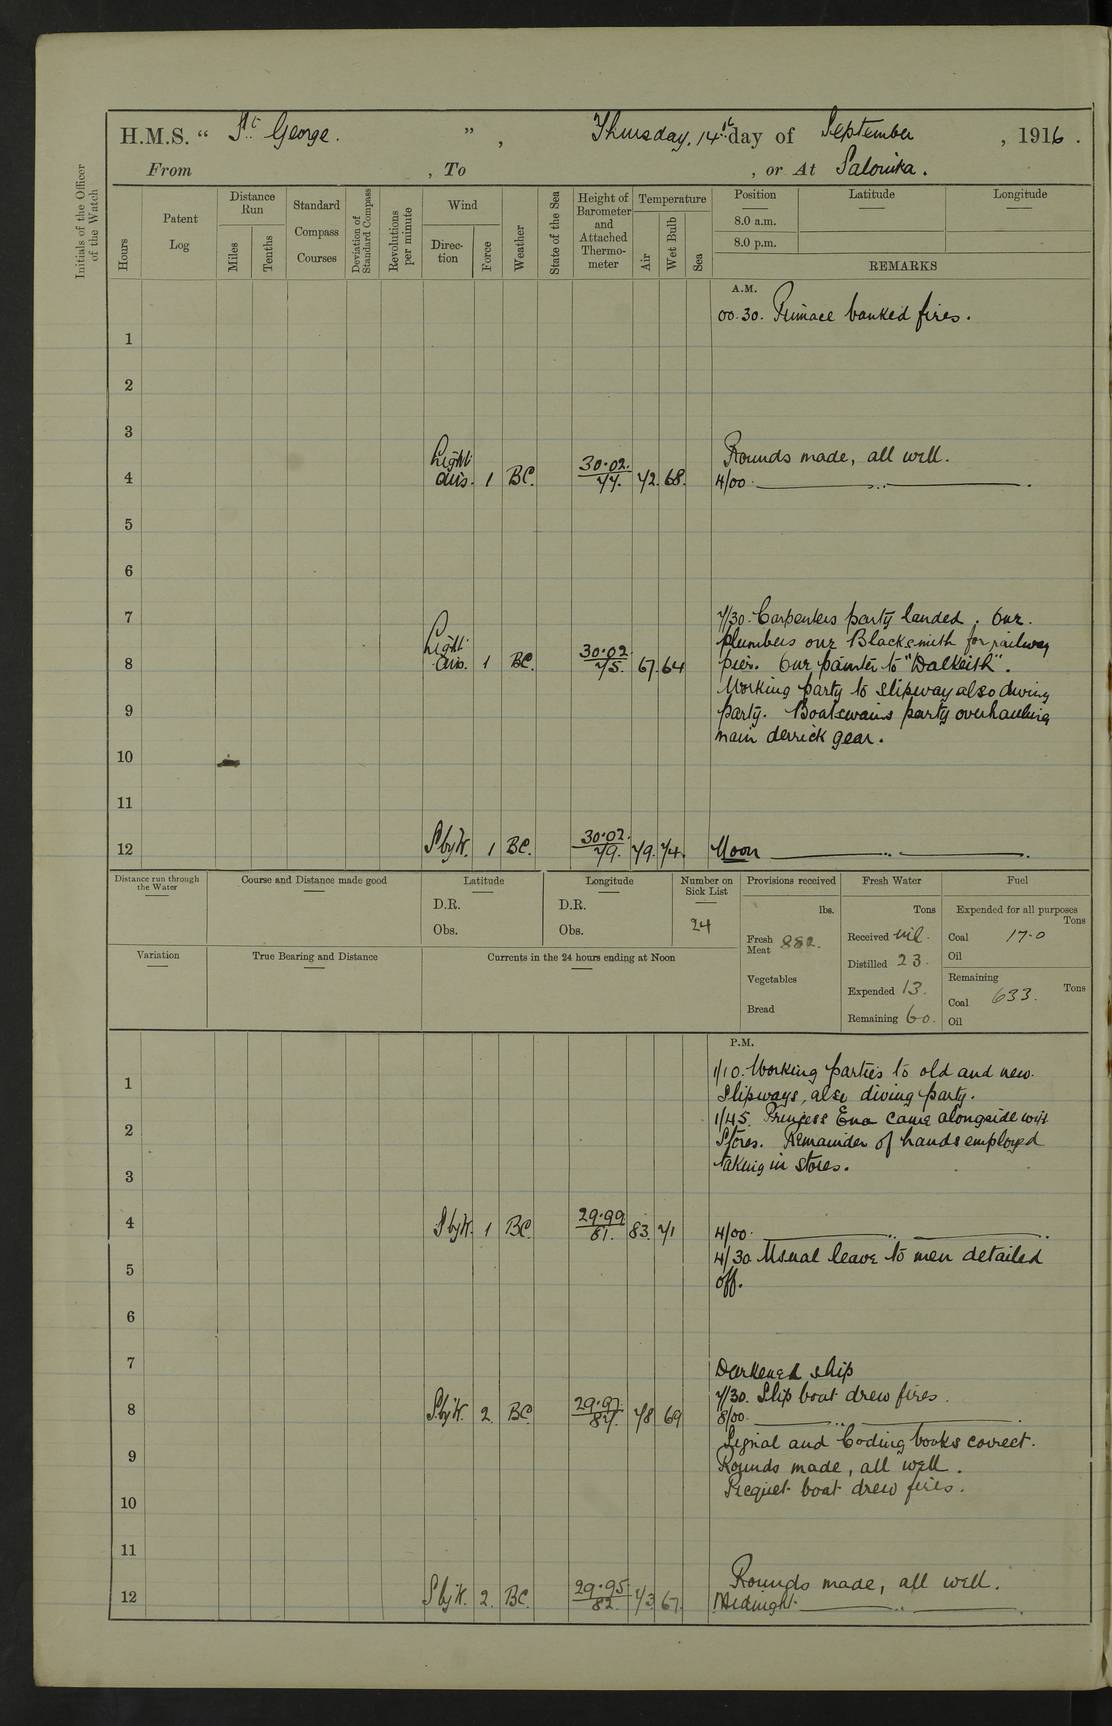 H.M.S. “ St George. ” , Thursday, 14th day of September , 1916 .
From , To , or At Salonika .
Initials of the Officer of the Watch
Hours
Patent Log
Distance Run
Miles
Tenths
Standard Compass Courses
Deviation of Standard Compass
Revolutions per minute
Wind
Direc-tion
Force
Weather
State of the Sea
Height of Barometer and Attached Thermo-meter
Temperature
Air
Wet Bulb
Sea
Position
Latitude
Longitude
8.0 a.m.
8.0 p.m.
REMARKS
A.M.
00.30. Pinnace banked fires.
1
2
3
Rounds made, all well.
4 Light airs. 1 BC. 30.02. 77. 72. 68. 4/00.
5
6
7 7/30. Carpenters party landed. Our
plumbers our Blacksmith for railway
8 Light airs. 1 BC. 30.02 75. 67. 64 pier. Our painter to "Dalkeith".
Working party to slipway also diving
9 party. Boatswains party overhauling
main derrick gear.
10
11
12 SbyW. 1 BC. 30.02. 79. 79. 74. Noon
Distance run through the Water
Course and Distance made good
Latitude
D.R.
Obs.
Longitude
D.R.
Obs.
Number on Sick List
24
Provisions received
lbs.
Fresh Meat 882.
Vegetables
Bread
Fresh Water
Tons
Received nil.
Distilled 23.
Expended 13.
Remaining 60.
Fuel
Expended for all purposes
Tons
Coal 17.0
Oil
Remaining
Tons
Coal 633.
Oil
Variation
True Bearing and Distance
Currents in the 24 hours ending at Noon
P.M.
1/10. Working parties to old and new
1 Slipways, also diving party.
1/45. Princess Ena came alongside with
2 Stores. Remainder of hands employed
3 taking in stores.
4 SbyW. 1 BC 29.99 81. 83. 71 4/00.
4/30 Usual leave to men detailed
5 off.
6
7 Darkened ship
7/30. Ship boat drew fires.
8 SbyW. 2. BC. 29.97. 87. 78 69 8/00.
Signal and Coding books correct.
9 Rounds made, all well.
Picquet boat drew fires.
10
11
Rounds made, all well.
12 SbyW. 2. BC. 29.95 82. 73 67. Midnight.